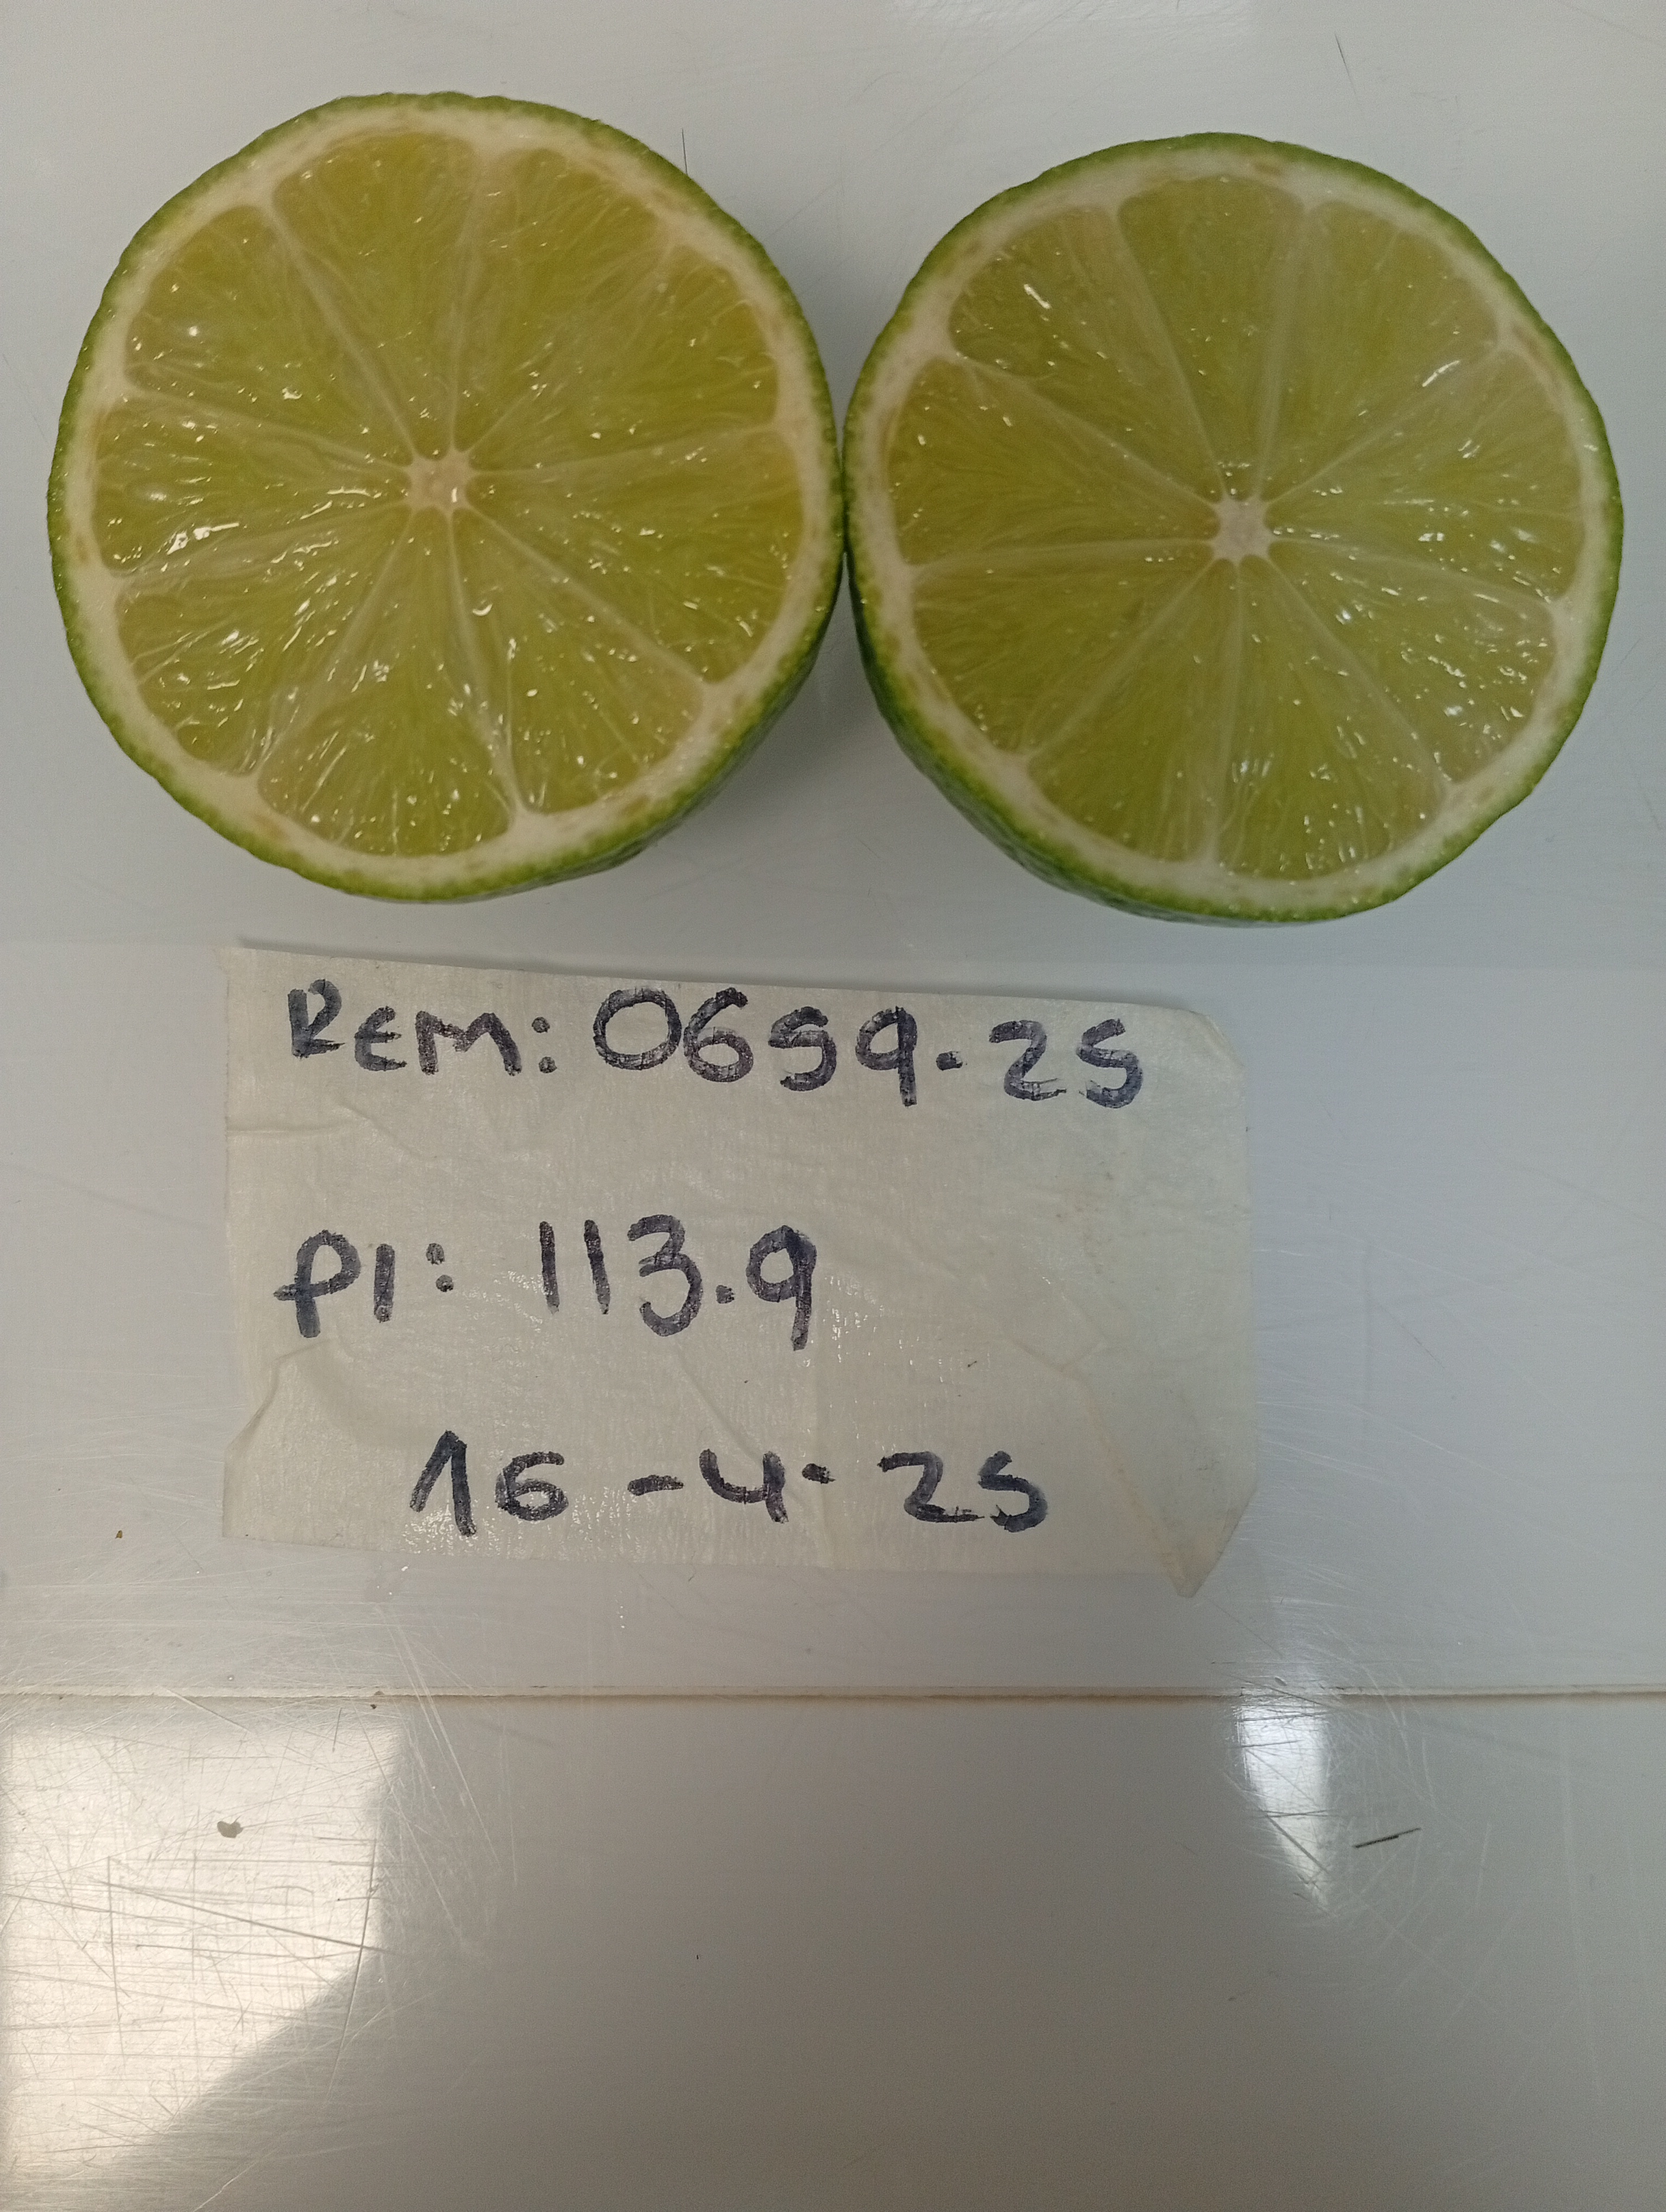 REM: 0659-25
PI: 113.9
16-4-25